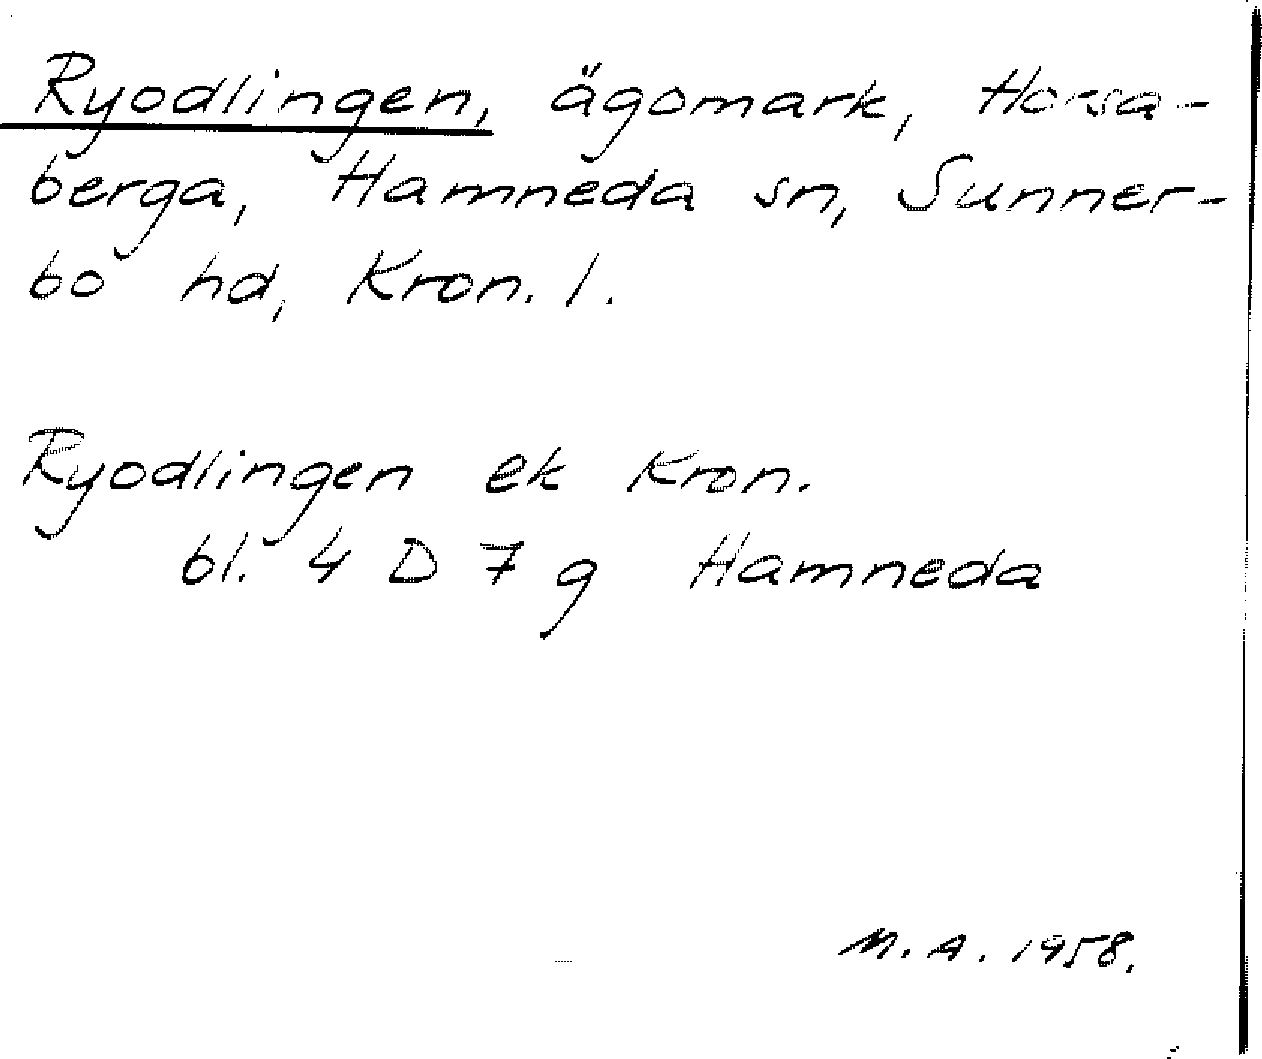 Ryodlingen, ägomark, Horsa-
berga, Hamneda sn, Sunner-
bo hd, Kron. l.
Ryodlingen ek Kron.
bl. 4 D 7 g Hamneda
M. A. 1958.